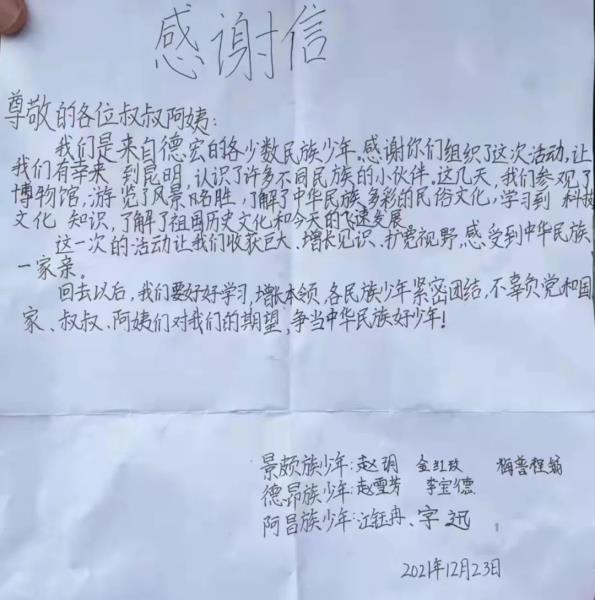 感谢信
尊敬的各位叔叔阿姨:
我们是来自德宏的各少数民族少年。感谢你们组织了这次活动,让
我们有幸来到昆明,认识了许多不同民族的小伙伴。这几天,我们参观了
博物馆,游览了风景名胜,了解了中华民族多彩的民俗文化,学习到科技
文化知识,了解了祖国历史文化和今天的飞速发展
这一次的活动让我们收获巨大、增长见识、扩宽视野,感受到中华民族
一家亲。
回去以后,我们要好好学习,增长本领,各民族少年紧密团结,不辜负党和国
家、叔叔、阿姨们对我们的期望,争当中华民族好少年!
景颇族少年:赵玥 金红玫
德昂族少年:赵雪芳 李宝德
阿昌族少年:江钰冉、字迅
2021年12月23日